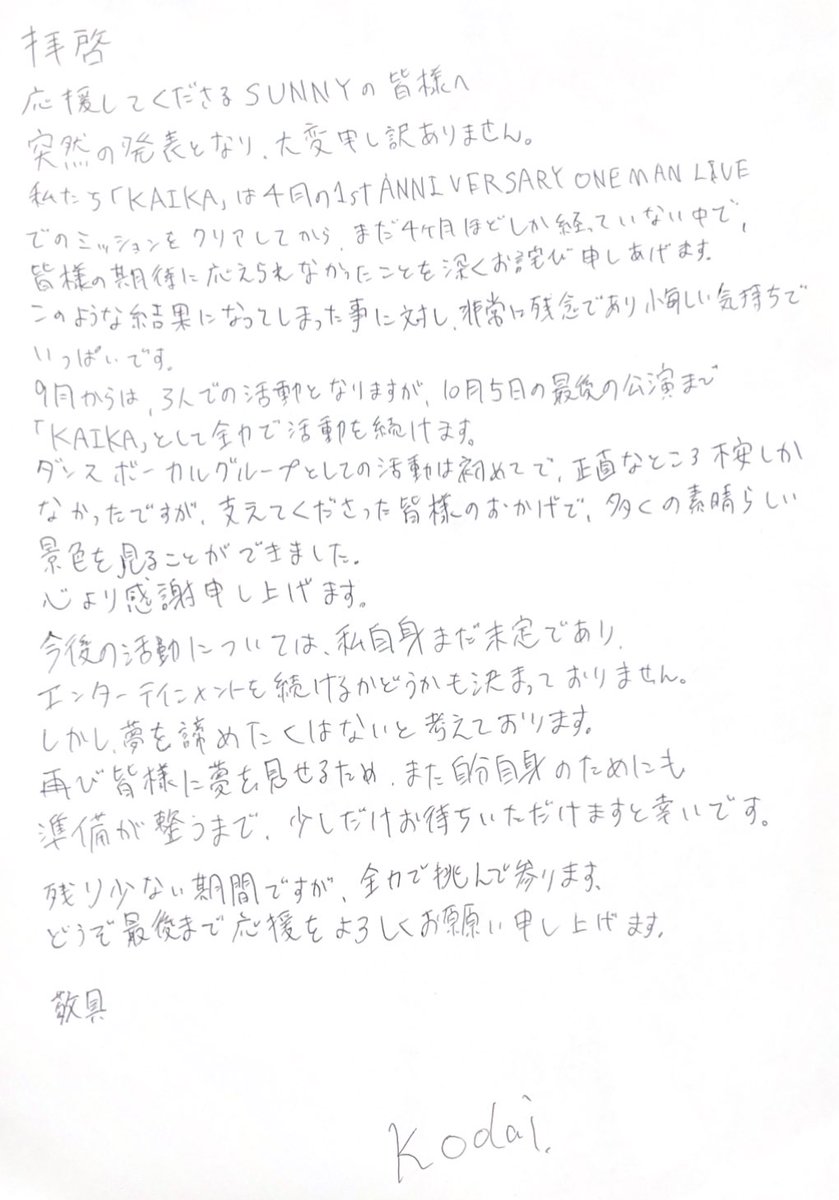 拝啓
応援してくださるSUNNYの皆様へ
突然の発表となり、大変申し訳ありません。
私たち「KAIKA」は4月の1st ANNIVERSARY ONE MAN LIVE
でのミッションをクリアしてから、まだ4ヶ月ほどしか経っていない中で、
皆様の期待に応えられなかったことを深くお詫び申しあげます。
このような結果になってしまった事に対し、非常に残念であり悔しい気持ちで
いっぱいです。
9月からは、3人での活動となりますが、10月5日の最後の公演まで
「KAIKA」として全力で活動を続けます。
ダンスボーカルグループとしての活動は初めてで、正直なところ不安しか
なかったですが、支えてくださった皆様のおかげで、多くの素晴らしい
景色を見ることができました。
心より感謝申し上げます。
今後の活動については、私自身まだ未定であり、
エンターテインメントを続けるかどうかも決まっておりません。
しかし、夢を諦めたくはないと考えております。
再び皆様に夢を見せるため、また自分自身のためにも
準備が整うまで、少しだけお待ちいただけますと幸いです。
残り少ない期間ですが、全力で挑んで参ります、
どうぞ最後まで応援をよろしくお願い申し上げます。
敬具
Kodai.